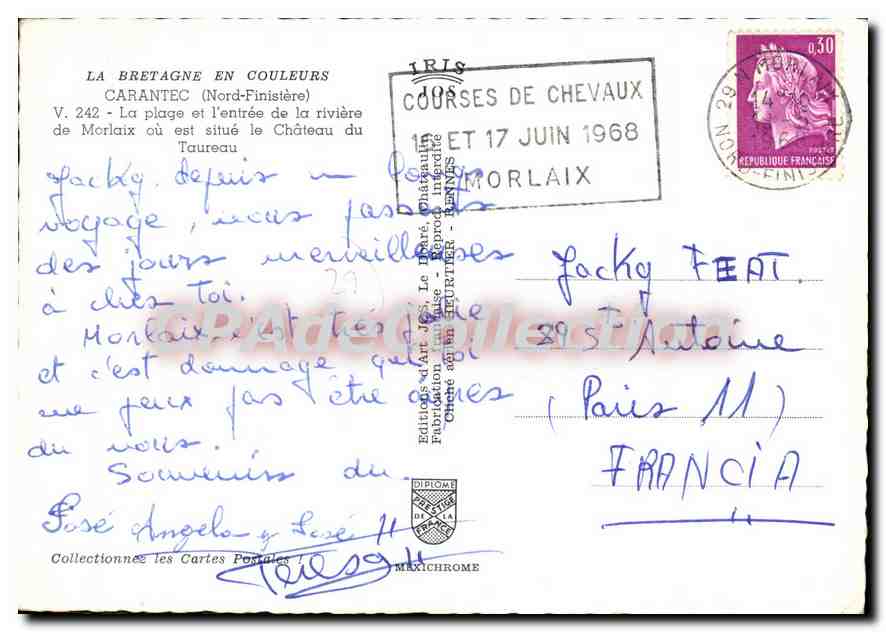 LA BRETAGNE EN COULEURS
CARANTEC (Nord-Finistère)
V. 242 - La plage et l'entrée de la rivière
de Morlaix où est situé le Château du
Taureau
Jacky. depuis un longs
voyage, nous passons
des jours merveilleuses
à ches toi.
Morlaix, c'est très jolie
et c'est dommage que toi
ne peux pas être avec
du nous.
Souvenirs du.
José Angela y José II
Teresa II
Collectionnez les Cartes Postales !
IRIS
JOS
Editions d'Art JOS, Le Doaré, Châteaulin
Fabrication française - Reprod. interdite
Cliché aérien HEURTIER - RENNES
DIPLOME
PRESTIGE
DE LA
FRANCE
MEXICHROME
COURSES DE CHEVAUX
16 ET 17 JUIN 1968
MORLAIX
0,30
POSTES
REPUBLIQUE FRANÇAISE
29 N
NORD-FINIS
Jacky FEAT.
39 St Antoine
(Paris 11)
FRANCIA
CPAdeCollection